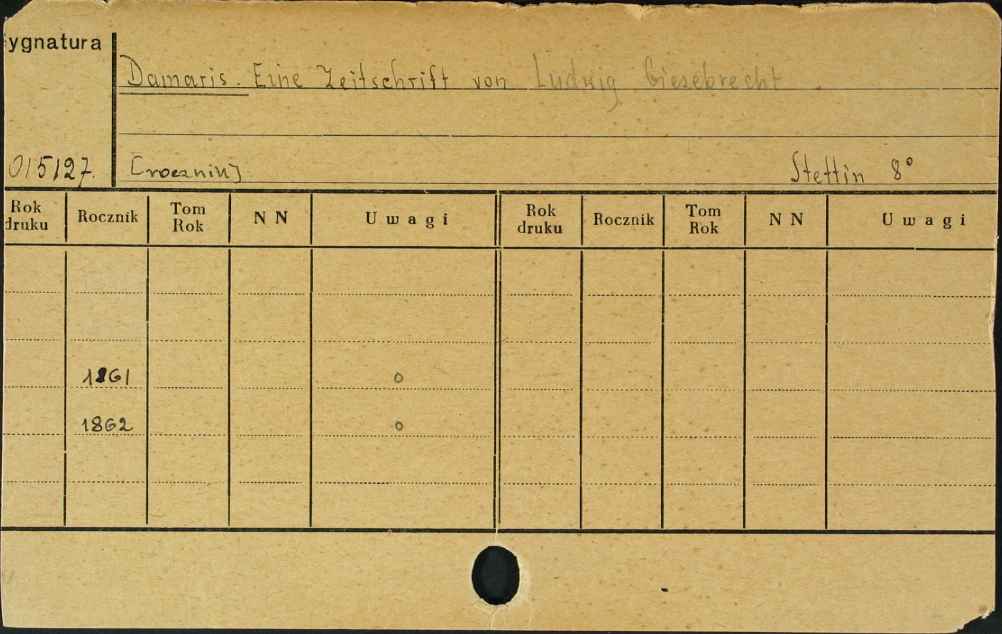 ygnatura
Damaris. Eine Zeitschrift von Ludwig Giesebrecht.
015127. [rocznik] Stettin 8°
Rok druku Rocznik Tom Rok N N Uwagi Rok druku Rocznik Tom Rok N N Uwagi
1861 o
1862 o